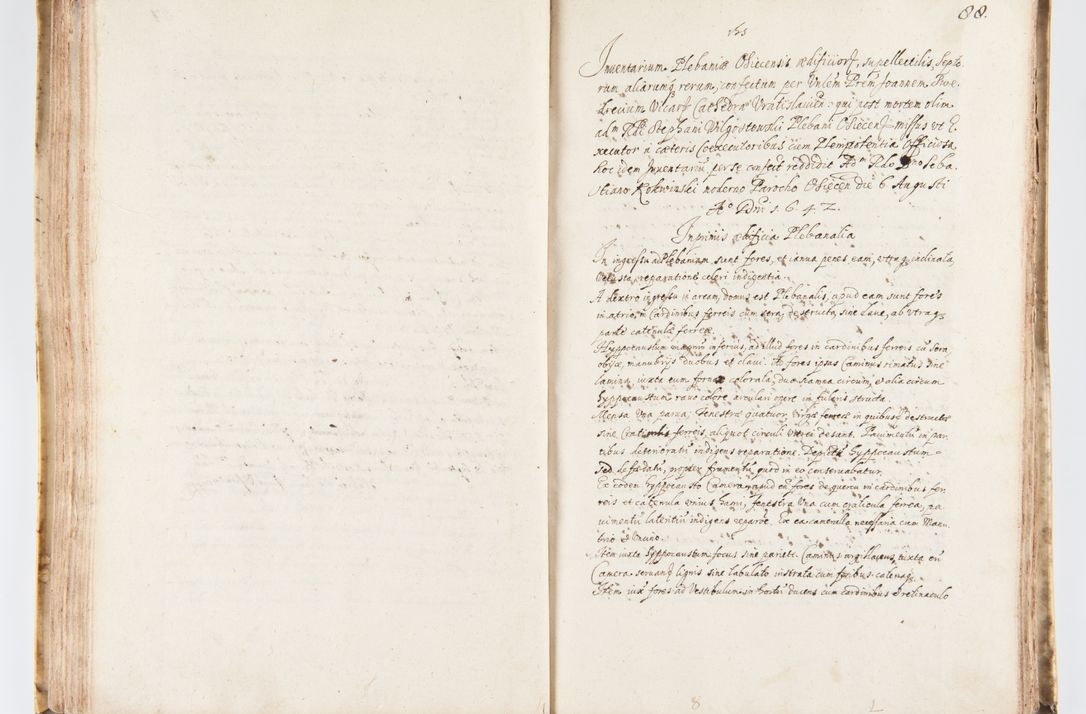 88.
Ihs
Inventarium Plebaniæ Osiecensis ædificiorũ, supellectilis, sepio-
rum aliarumq̃ rerum, confectum per Vnlem Prem Joannem
Vicar Cathedræ Vratislavien: qui post mortem olim
adm Rdi Stephani Wilgostowskii Plebani Osiecen missus vt E-
xecutor a cæteris Coexecutoribus cum Plenipotentia Officiosa
hoc idem Inventariũ per se confect reddidit Adm Rdo Dno Seba-
stiano Rokwinski moderno Parocho Osiecen die 6 Augusti
Ao Dni 1. 6. 4. 7.
Inprimis ædificia Plebanalia
In ingressu ad Plebaniam sunt fores, et ianua penes eam, vtraq inclinata,
vetusta, reparatione celeri indigentia.
A dextro ingressu in aream, domus est Plebanalis, apud eam sunt fores
in atrio in Cardinibus ferreis cum sera destructa, sine clave, ab vtraq
parte catenulæ ferreæ.
Hyppocaustum magnum inferius, ad illud fores in cardinibus ferreis cũ sera
manubrijs duobus et clavi. At fores ipsas Caminus sine
lamina, iuxta eum fornax colorata, duæ scamna circum, et alia circum
Hyppocaustum rauo colore arculari opere in structa.
Mensa vna parva, Fenestræ quatuor, virgæ ferreæ in quibus destructæ
sine Cratibus ferreis, aliquot circuli vitrei desunt. Pavimentũ in par-
tibus deteriorati indigens reparatione. Depictũ hyppocaustum
sed defædatũ, propter frumentũ quod in eo conservabatur.
Ex eodem hyppocausto Camera apud eã fores de quercu in cardinibus fer-
reis et catenula vnius hami, fenestra vna cum craticula ferrea, pa-
vimentũ lateritiũ indigens reparõe. Ex ea camerula necessaria cum Manu-
brio et vnco.
Item iuxta hyppocaustum focus sine pariete. Caminus argillaceus, iuxta eũ
Camera lignis sine tabulato instrata cum foribus
Item iuxta fores ad Vestibulum in hortũ ducens cum cardinibus et retinaculo
8